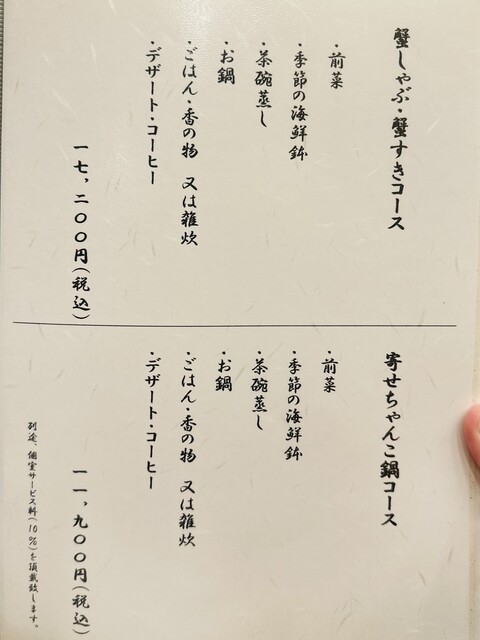 蟹しゃぶ・蟹すきコース
・前菜
・季節の海鮮鉢
・茶碗蒸し
・お鍋
・ごはん・香の物 又は雑炊
・デザート・コーヒー
一七，二〇〇円（税込）
寄せちゃんこ鍋コース
・前菜
・季節の海鮮鉢
・茶碗蒸し
・お鍋
・ごはん・香の物 又は雑炊
・デザート・コーヒー
一一，九〇〇円（税込）
別途、個室サービス料（10％）を頂戴致します。